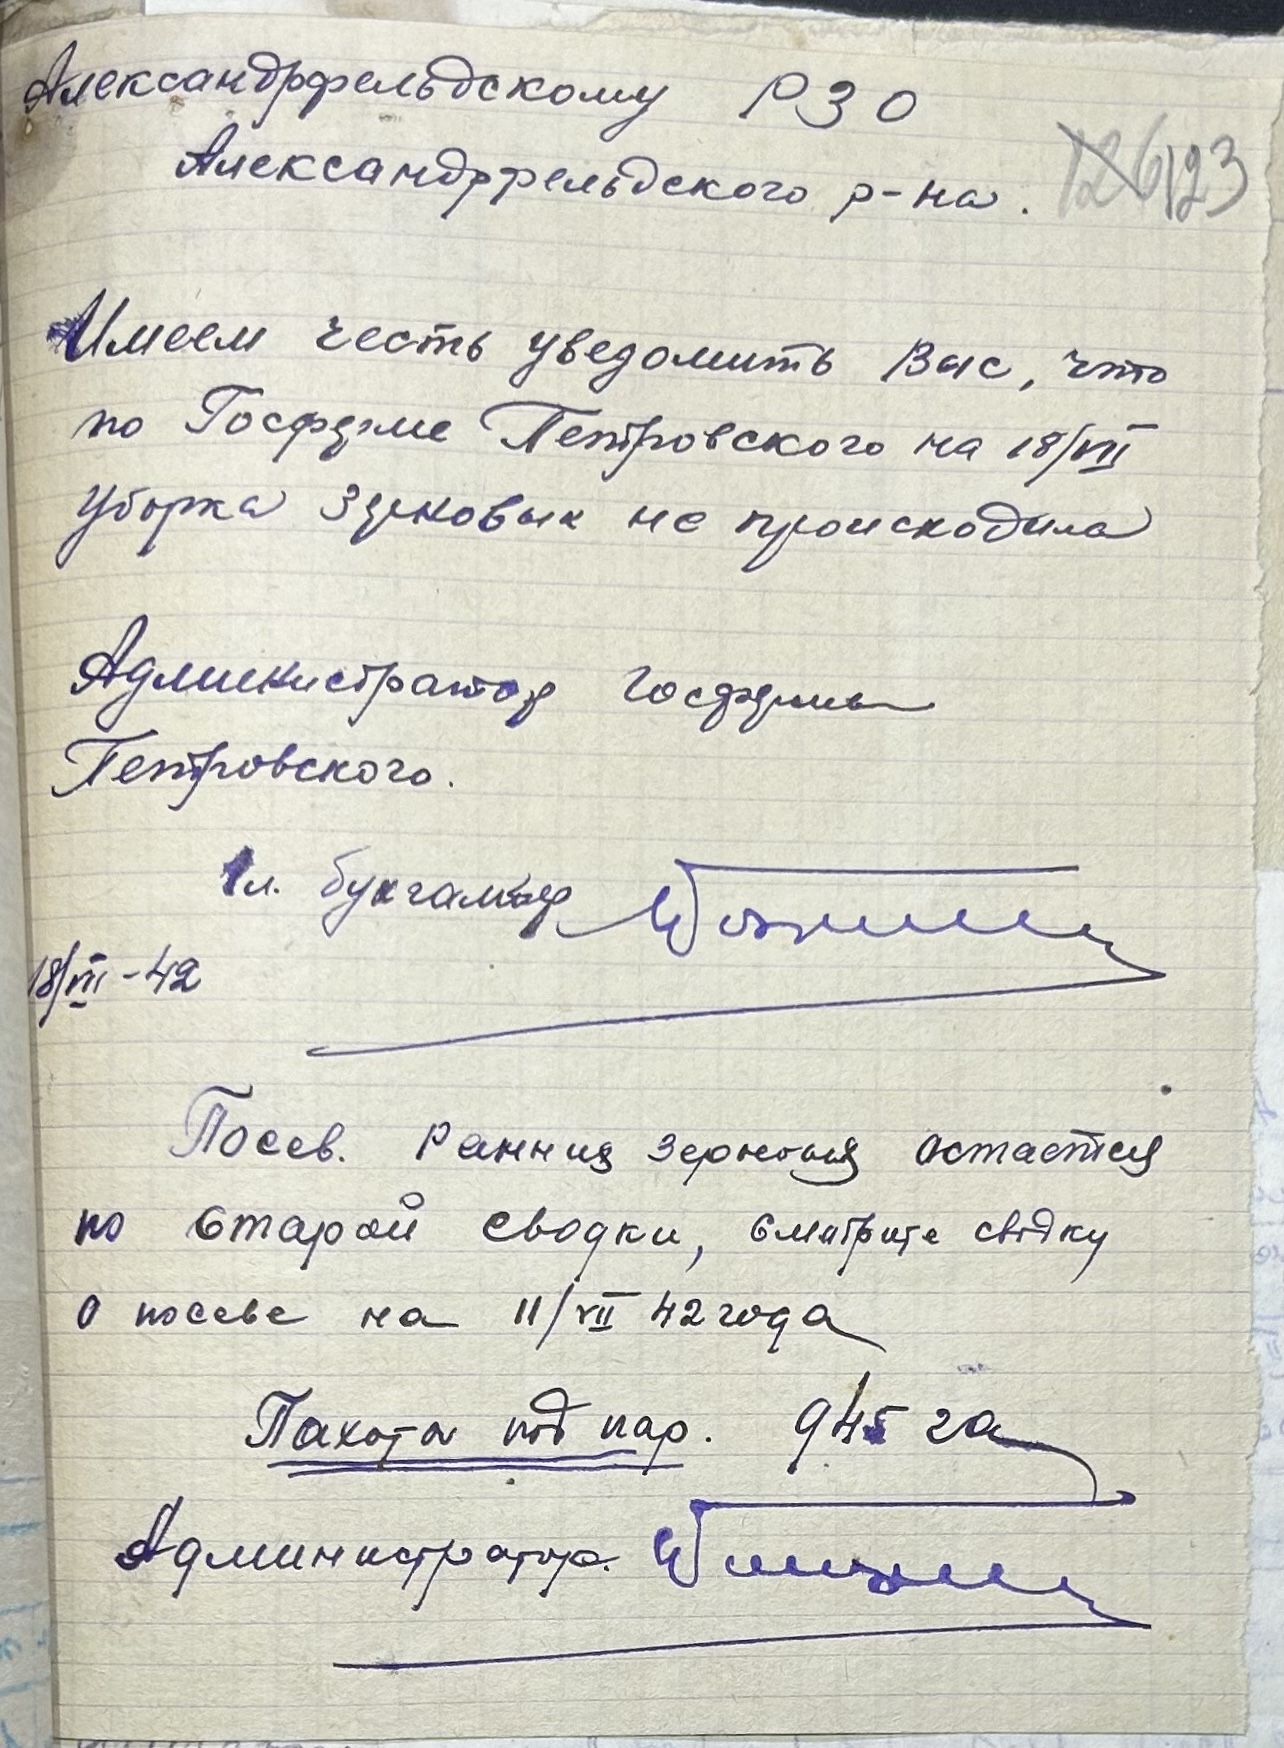 Александрфельдскому РЗО
Александрфельдского р-на.
126 123
Имеем честь уведомить Вас, что
по Госферме Петровского на 18/VII
уборка зерновых не происходила
Администратор Госфермы
Петровского.
Гл. бухгалтер
18/VII-42
Посев. Ранния зерновыя остается
по старой сводки, смотрите сводку
о посеве на 11/VII 42 года
Пахота под пар. 945 га
Администратор.